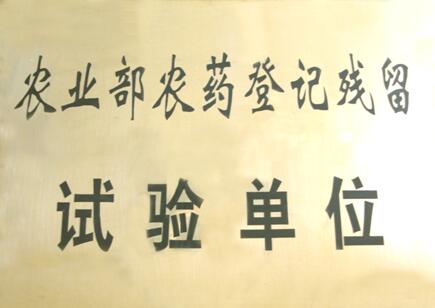 农业部农药登记残留
试验单位